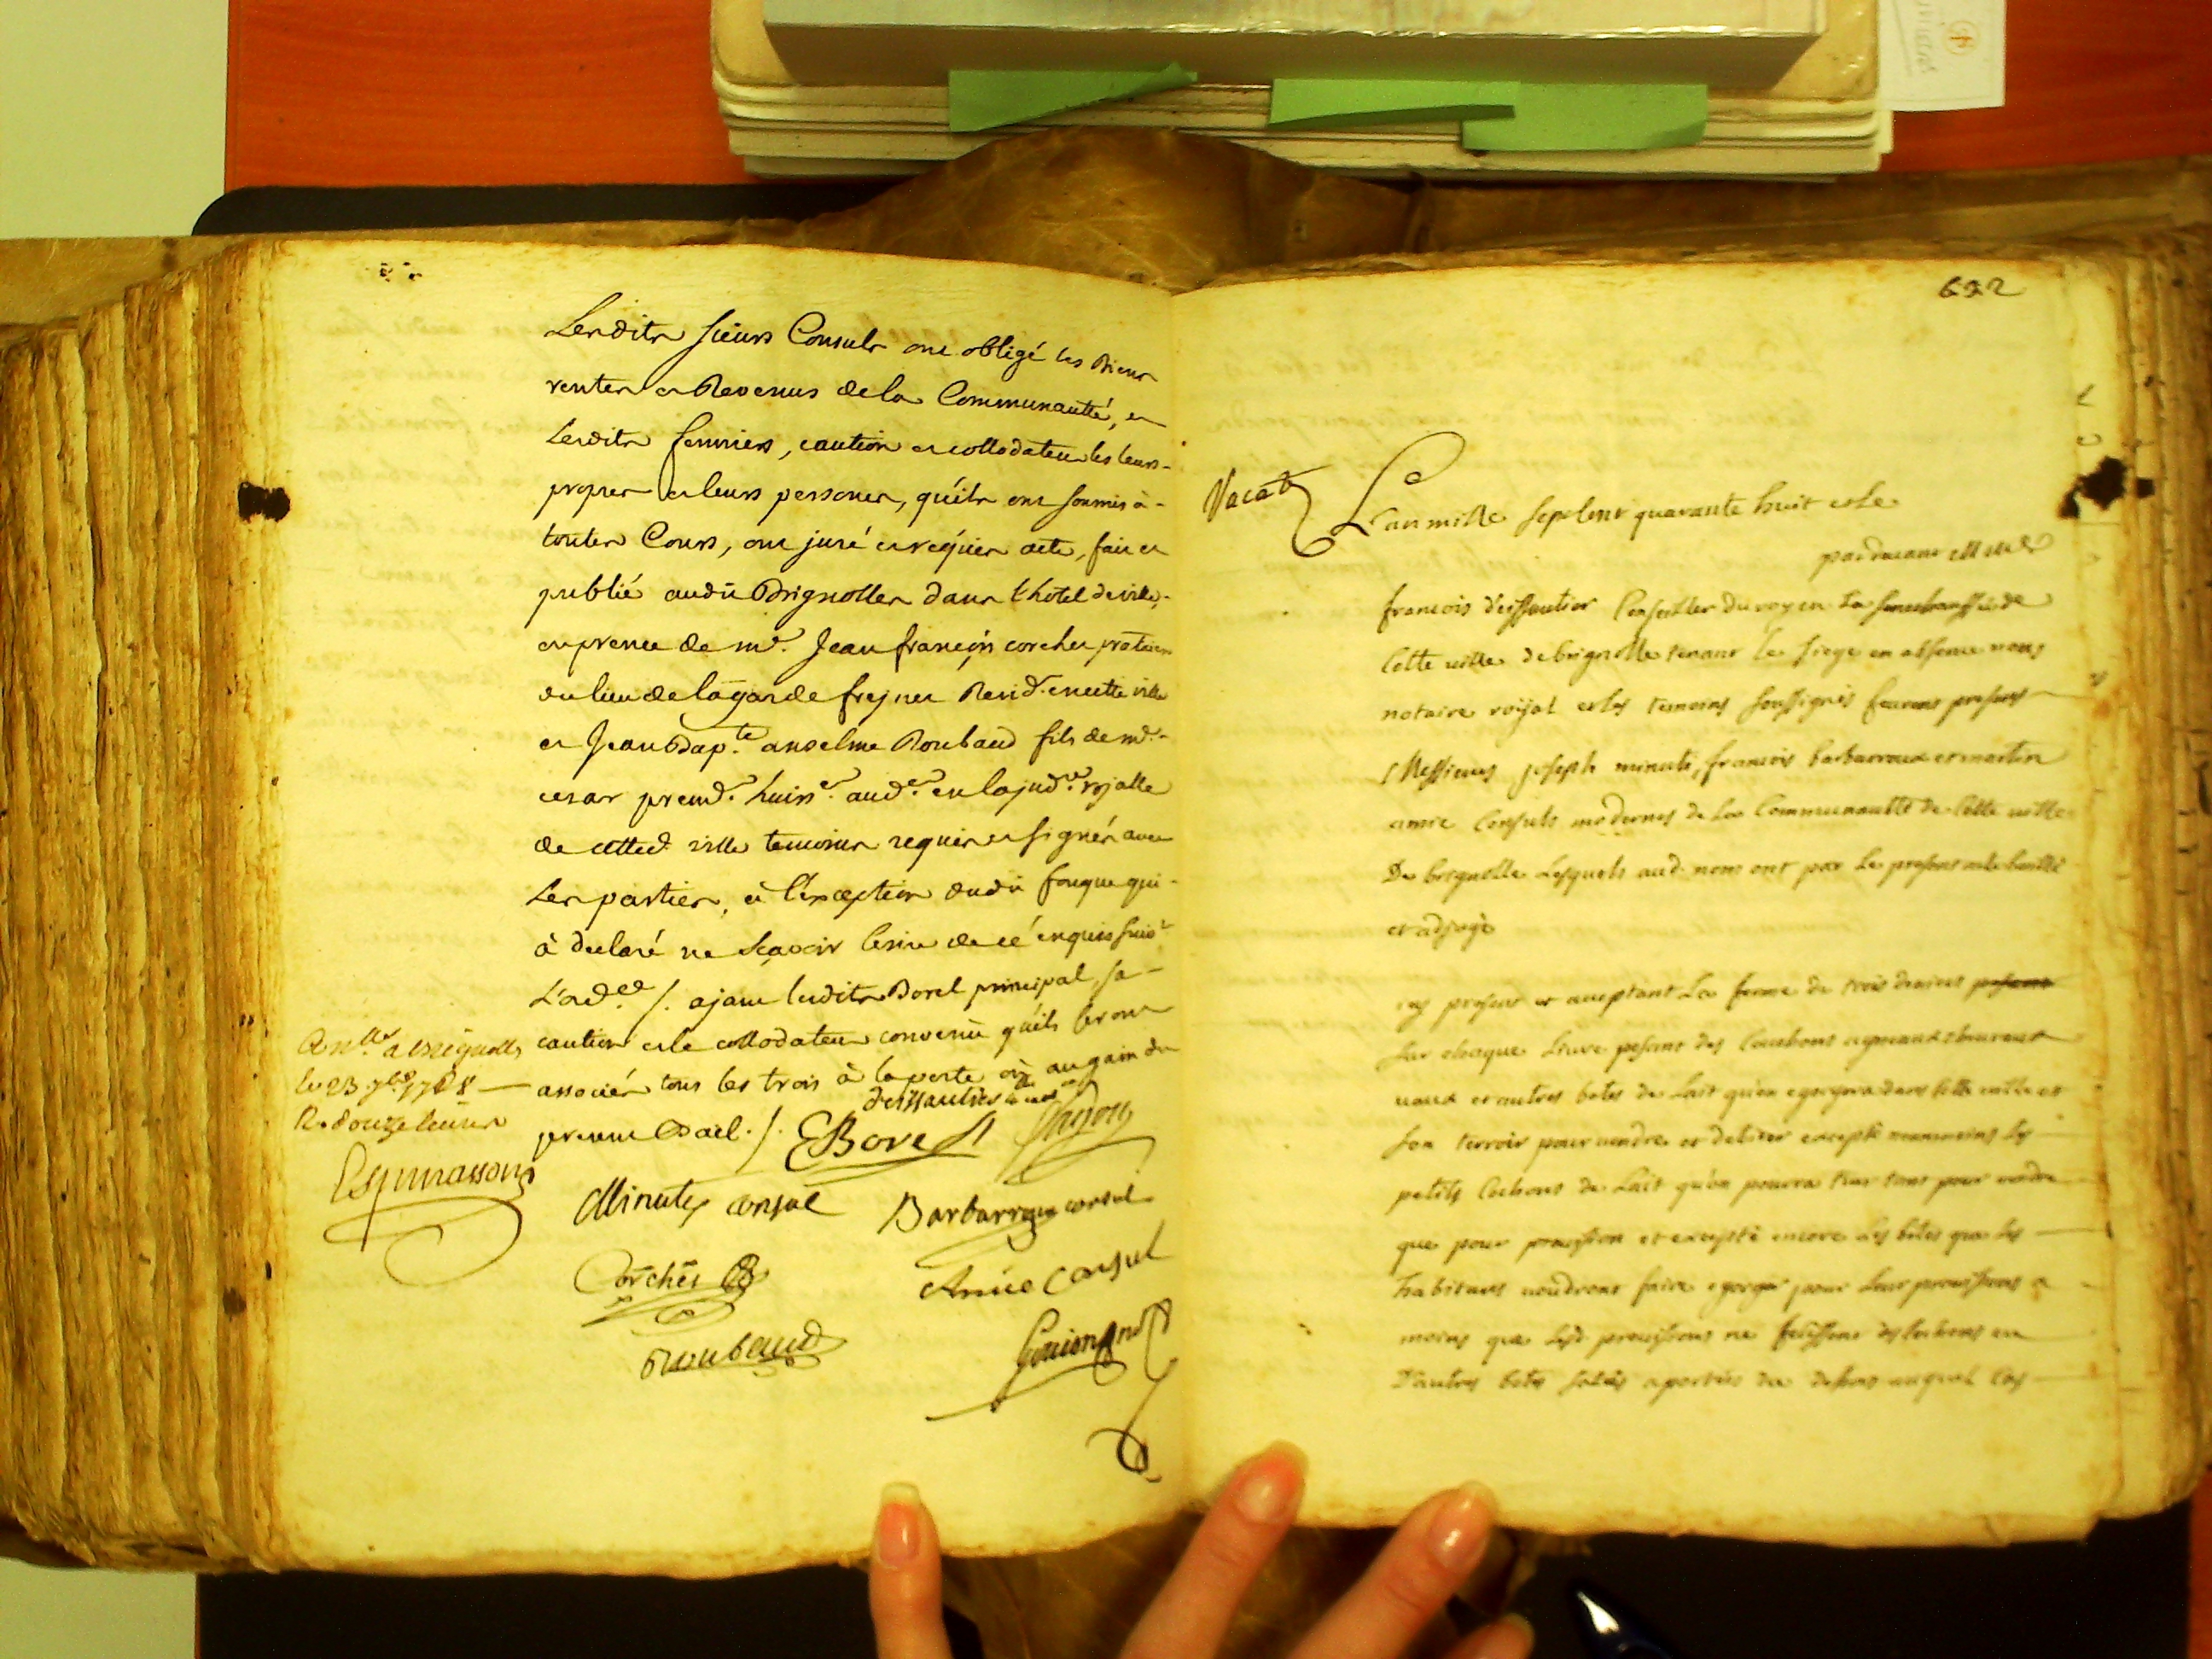 Lesdits sieurs Consuls ont obligé les Biens
rentes et Revenus de la Communauté, et
Lesdits fermiers, caution et collodateur les leurs
propres et leurs persones, qu'ils ont soumis à
toutes Cours, ont juré et requis acte, fait et
publié audit Brignolles dans l'hôtel de ville,
en prence de me. Jean françois corchés praticien
du lieu de la garde freynet Resid. en cette ville
et Jean Bap.te anselme Roubaud fils de me.
cesar premd. huiss.r aud.r en la jud.re rojalle
de cetted. ville temoins requis et signés avec
Les parties, à l'exception dudit fouque qui
à declaré ne sçavoir lesire de ce enquis suiv.t
L'ord.ce /. ajant lesdits Borel principal, sa
caution et le collodateur convenu qu'ils seront
associés tous les trois à la perte ou au gain du
present Bail ./.
dessautier
EBorel
Minuty consul
Barbarroux consul
Corchés
Amic Consul
Roubaud
a Brignolles
le 23 7bre 1748
R. douze
632
Vacat
L'an mille sept cent quarante huit et le
pardevant
francois dessautier Conseiller du roy en La senechaussée de
Cette ville de brignolle tenant le siege en absence nous
notaire roijal et les temoins soussignés feurent presents
Messieurs joseph minuti, francois barbarroux et martin
amic Consuls modernes de La Communautté de Cette ville
De brignolle Lesquels aud. nom ont par Le present acte baillé
et adjugé
icy present et acceptant La ferme de trois deniers pesant
sur chaque Livre pesant des Cauchons agneaux chevreaux
uaux et autres betes de Lait qu'on egorgera dans cette ville et
son terroir pour vendre et debiter excepté neanmoins Les
petits Cochons de Lait qu'on pourra tuer tant pour vendre
que pour provision et excepté encore Les bêtes que Les
habitans voudront faire egorger pour Leur provisions a
moins que Lesd. provisions ne feussent des Cochons ou
D'autres betes salées aportées du dehors auquel Cas